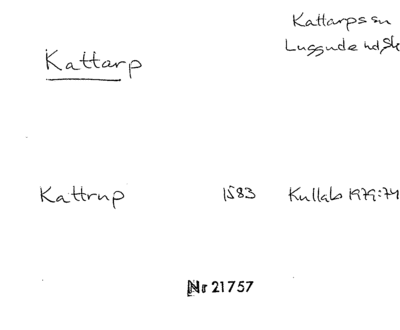 Kattarps sn
Luggude hd, Sk
Kattarp
Kattrup 1583 Kullab 1979:74
Nr 21757